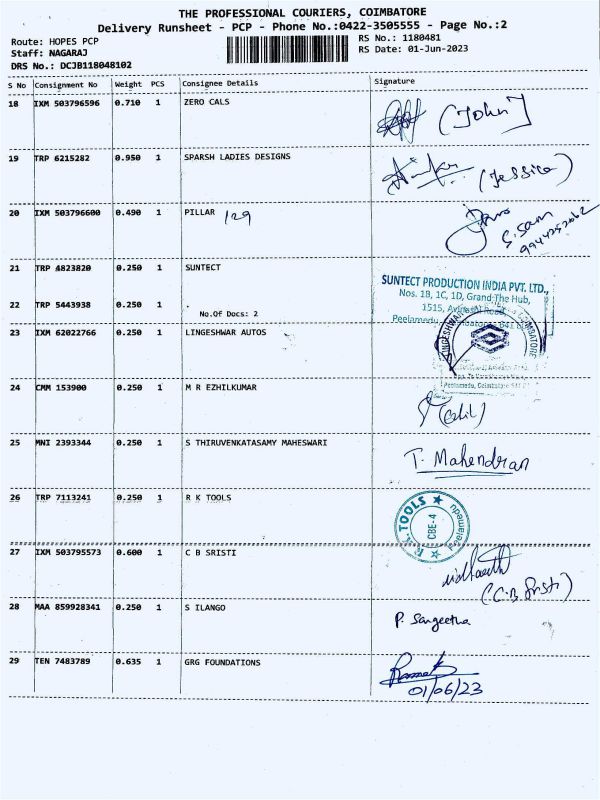 THE PROFESSIONAL COURIERS, COIMBATORE
Delivery Runsheet - PCP - Phone No.:0422-3505555 - Page No.:2
Route: HOPES PCP
RS No.: 1180481
Staff: NAGARAJ
RS Date: 01-Jun-2023
DRS No.: DCJB118048102
S No Consignment No Weight PCS Consignee Details Signature
18 IXM 503796596 0.710 1 ZERO CALS
(John)
19 TRP 6215282 0.950 1 SPARSH LADIES DESIGNS
(Jessica)
20 IXM 503796600 0.490 1 PILLAR 129
S. Sam
21 TRP 4823820 0.250 1 SUNTECT
SUNTECT PRODUCTION INDIA PVT. LTD.,
Nos. 1B, 1C, 1D, Grand The Hub,
1515, Avinashi Road,
22 TRP 5443938 0.250 1
No.Of Docs: 2
23 IXM 62022766 0.250 1 LINGESHWAR AUTOS
COIMBATORE
24 CMM 153900 0.250 1 M R EZHILKUMAR
25 MNI 2393344 0.250 1 S THIRUVENKATASAMY MAHESWARI
T. Mahendran
26 TRP 7113241 0.250 1 R K TOOLS
R.K. TOOLS
CBE-4
Peelamedu
27 IXM 503795573 0.600 1 C B SRISTI
(C.B Sristi)
28 MAA 859928341 0.250 1 S ILANGO
P. Sangeetha
29 TEN 7483789 0.635 1 GRG FOUNDATIONS
01/06/23